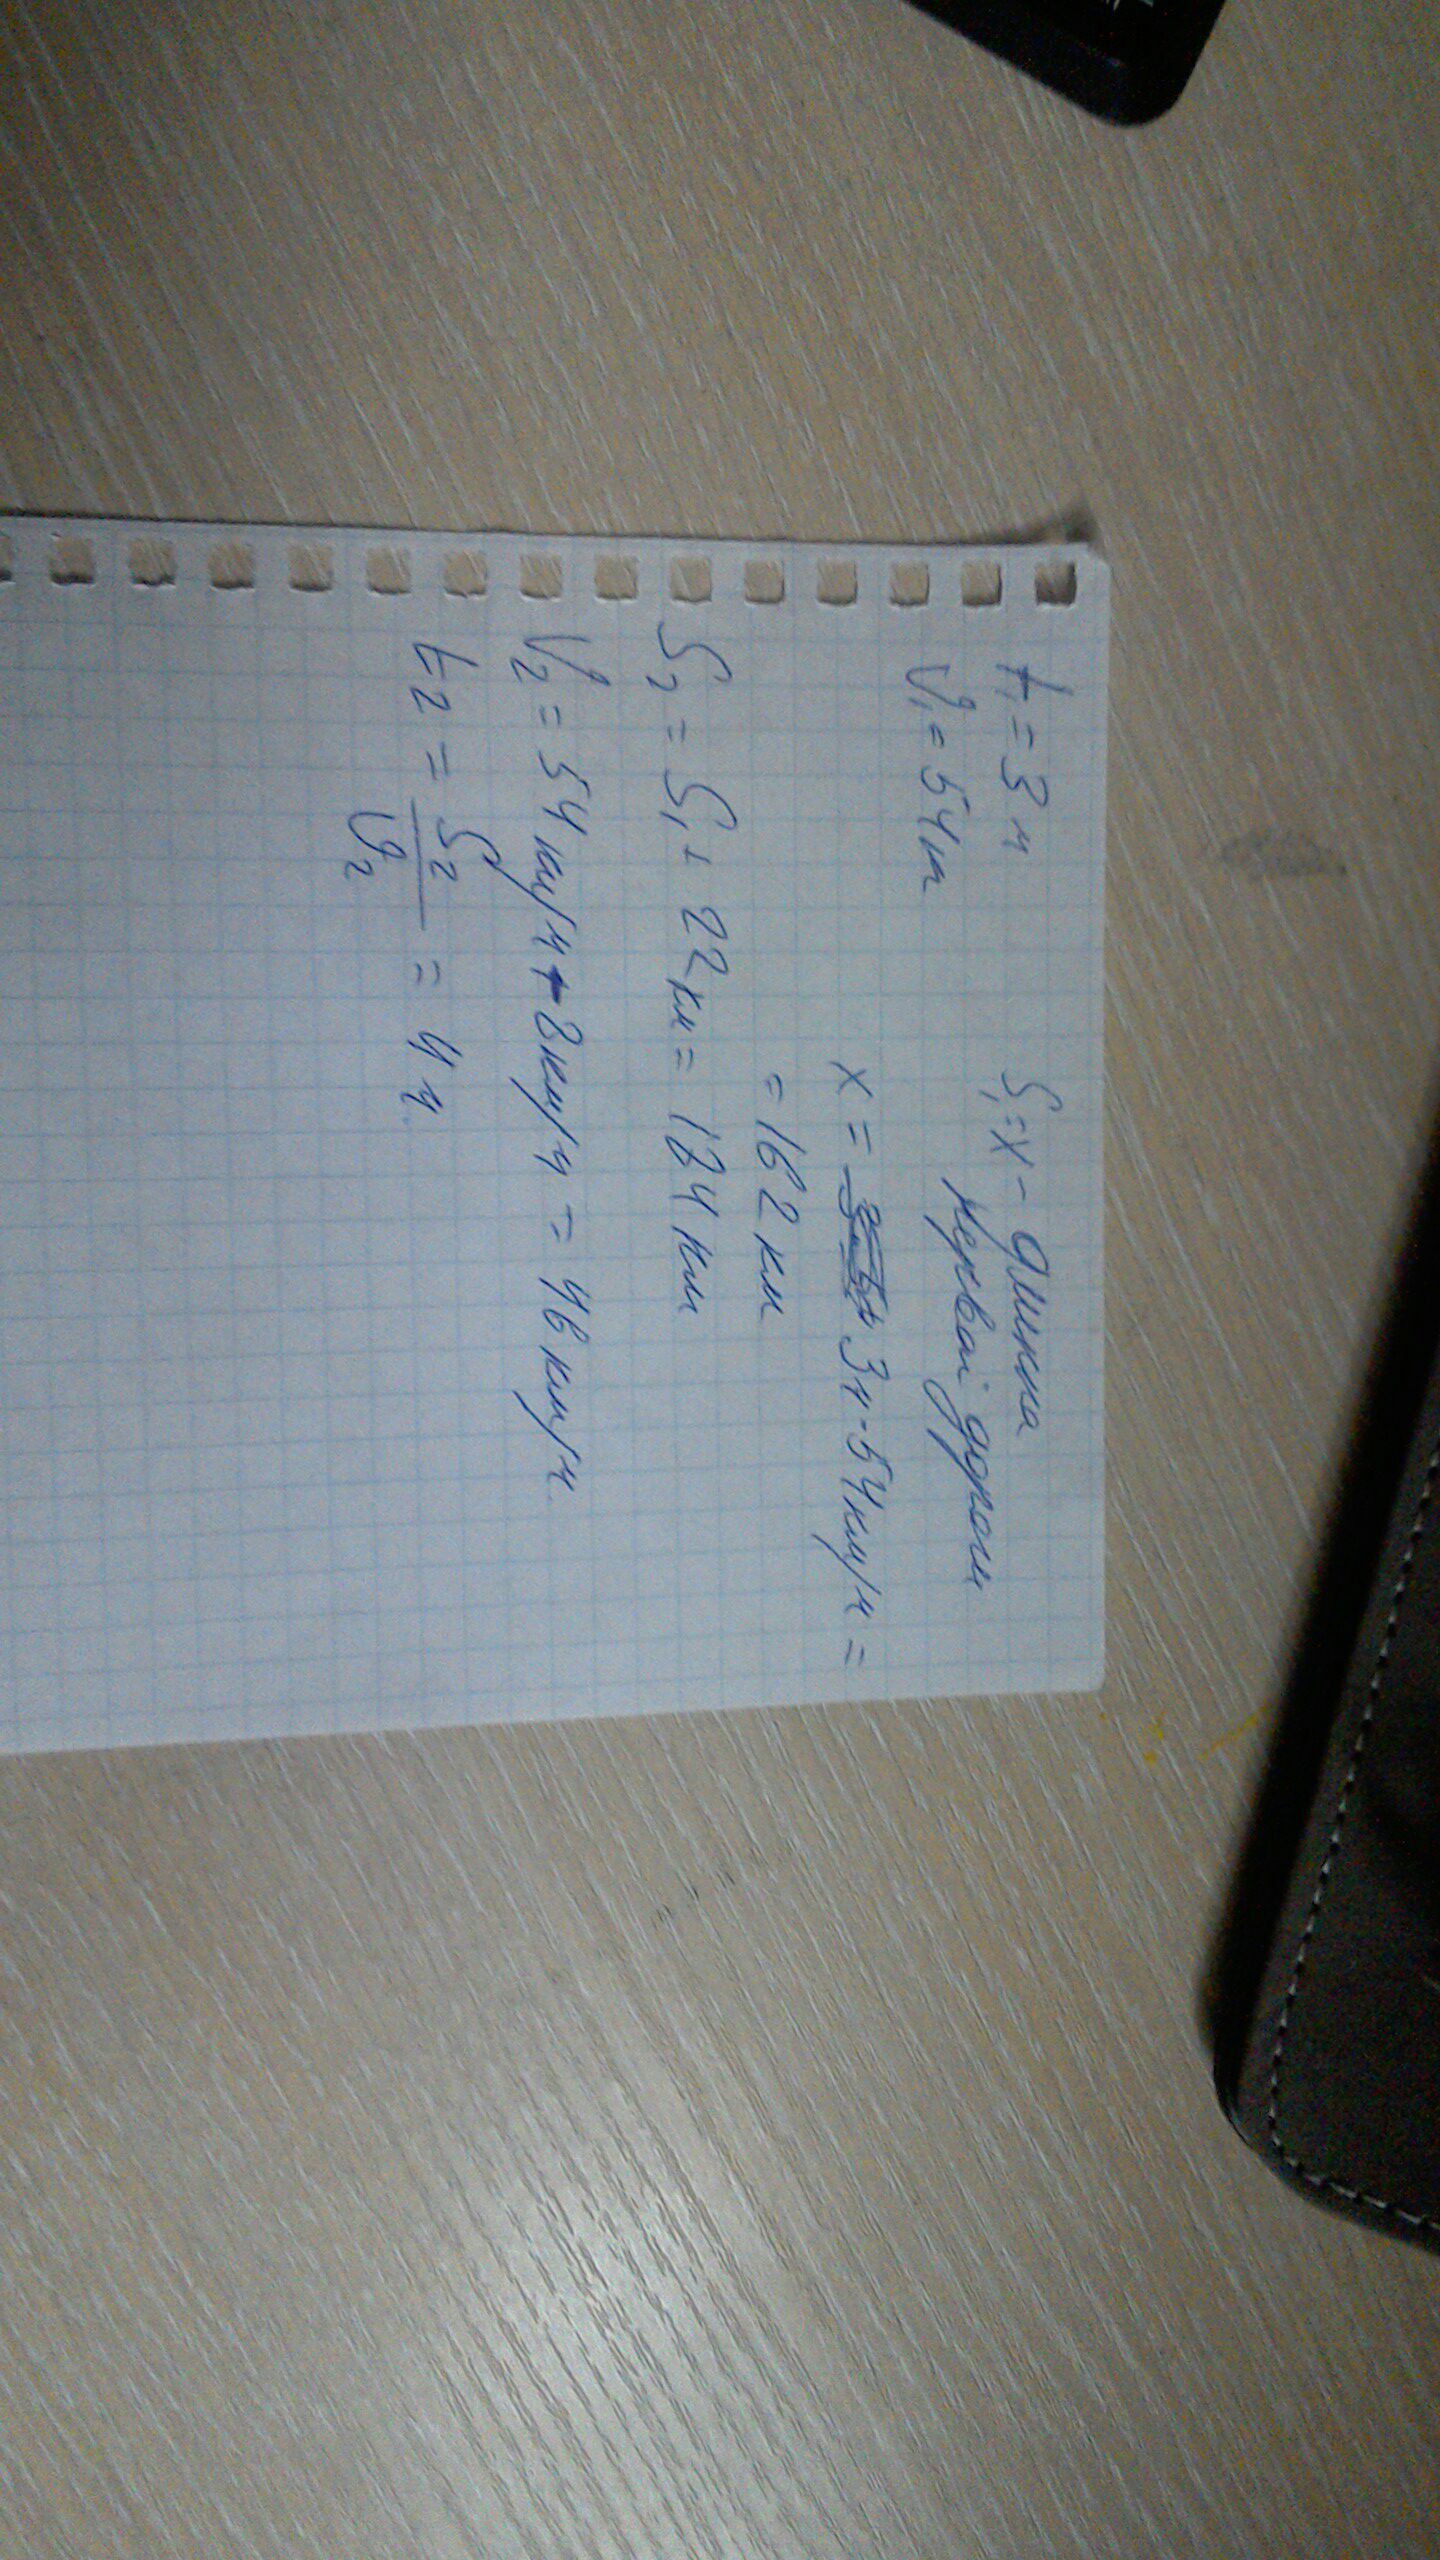 t₁ = 3 ч
S₁ = x - длинна
первой дороги
V₁ = 54
x = 3ч · 54км/ч =
= 162 км
S₂ = S₁ + 22 км = 184 км
V₂ = 54 км/ч - 8 км/ч = 46 км/ч.
t₂ = S₂/V₂ = 4 ч.